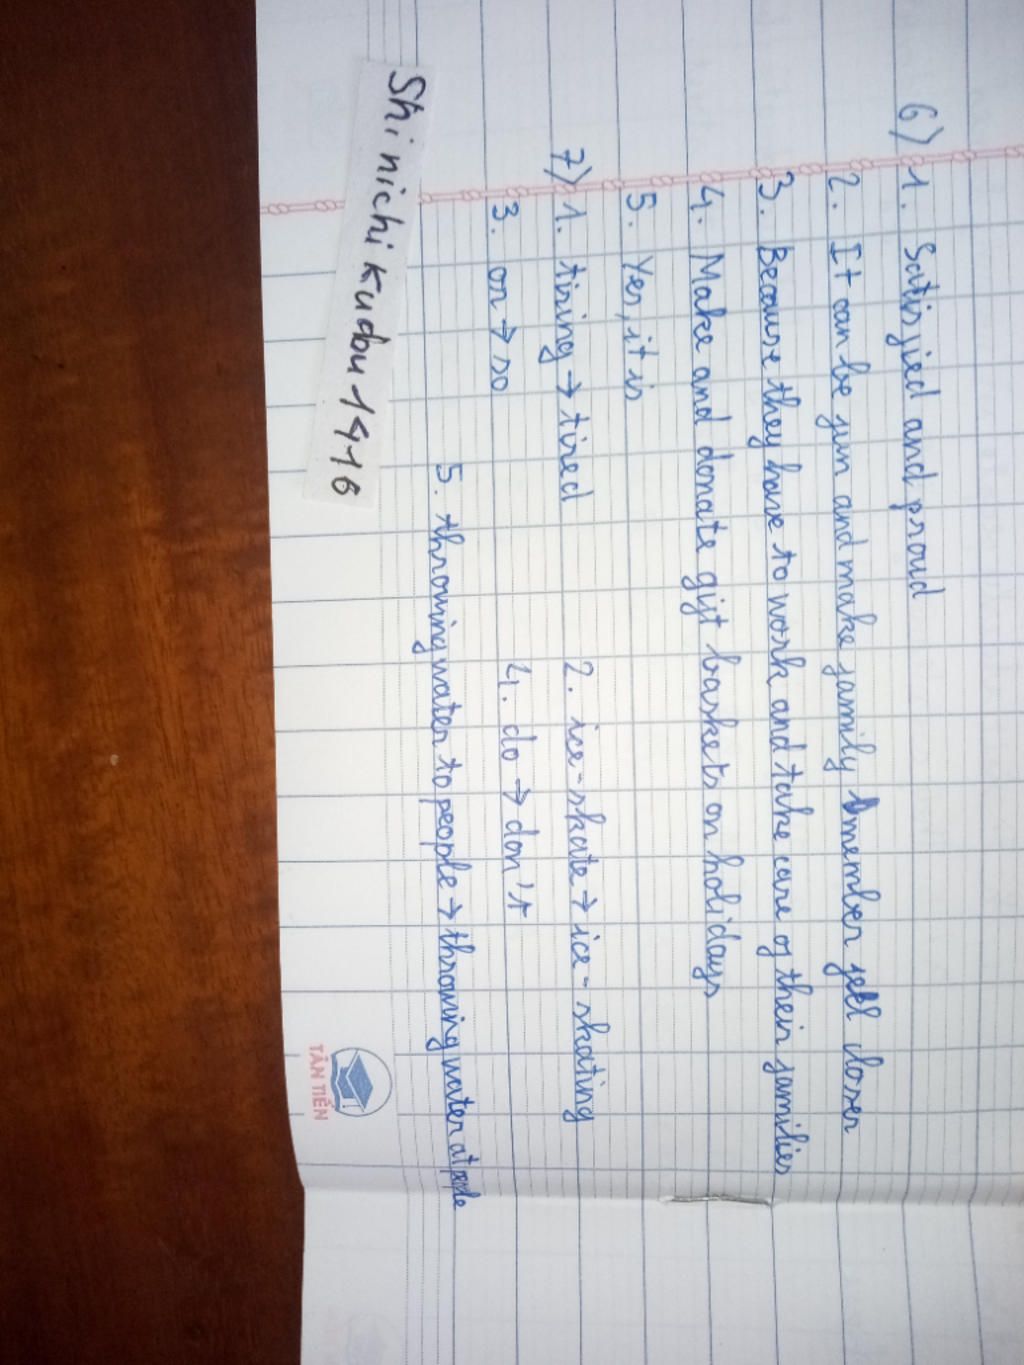 6) 1. Satisfied and proud
2. It can be fun and make family member feel closer
3. Because they have to work and take care of their families
4. Make and donate gift baskets on holidays
5. Yes, it is
7) 1. tiring → tired 2. ice-skate → ice-skating
3. on → so 4. do → don't
5. throwing water to people → throwing water at people
Shinichikudou1416
TÂN TIẾN